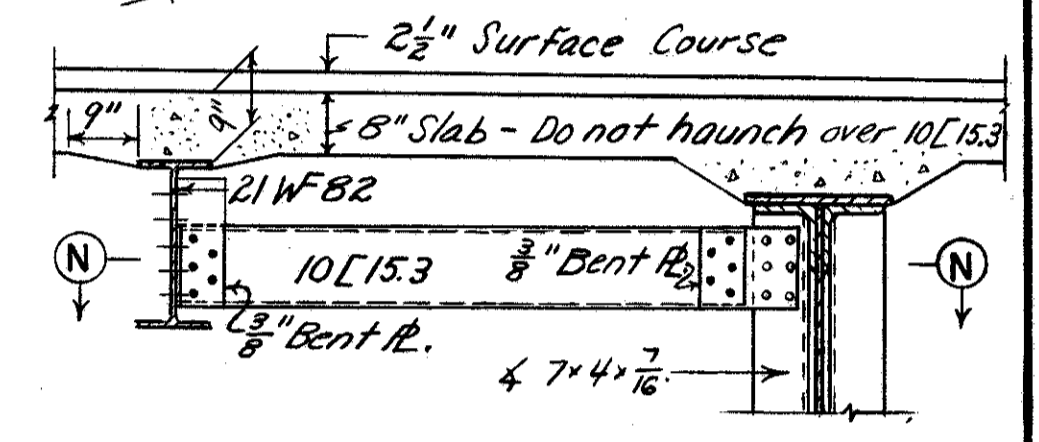 2½" Surface Course
9"
9"
8" Slab - Do not haunch over 10[15.3
21 WF 82
N
10[15.3
⅜" Bent ℙL.
N
⅜" Bent ℙL.
∡ 7×4×7/16